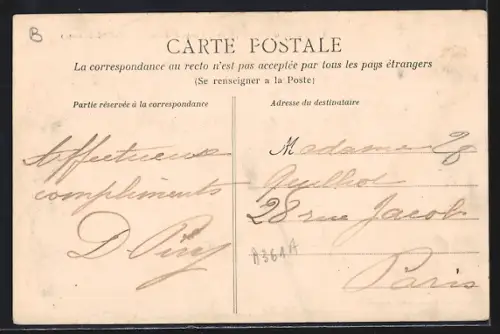 B
CARTE POSTALE
La correspondance au recto n'est pas acceptée par tous les pays étrangers
(Se renseigner a la Poste)
Partie réservée à la correspondance
Adresse du destinataire
Affectueux
compliments
D
Madame
28 rue Jacob
Paris
A361A